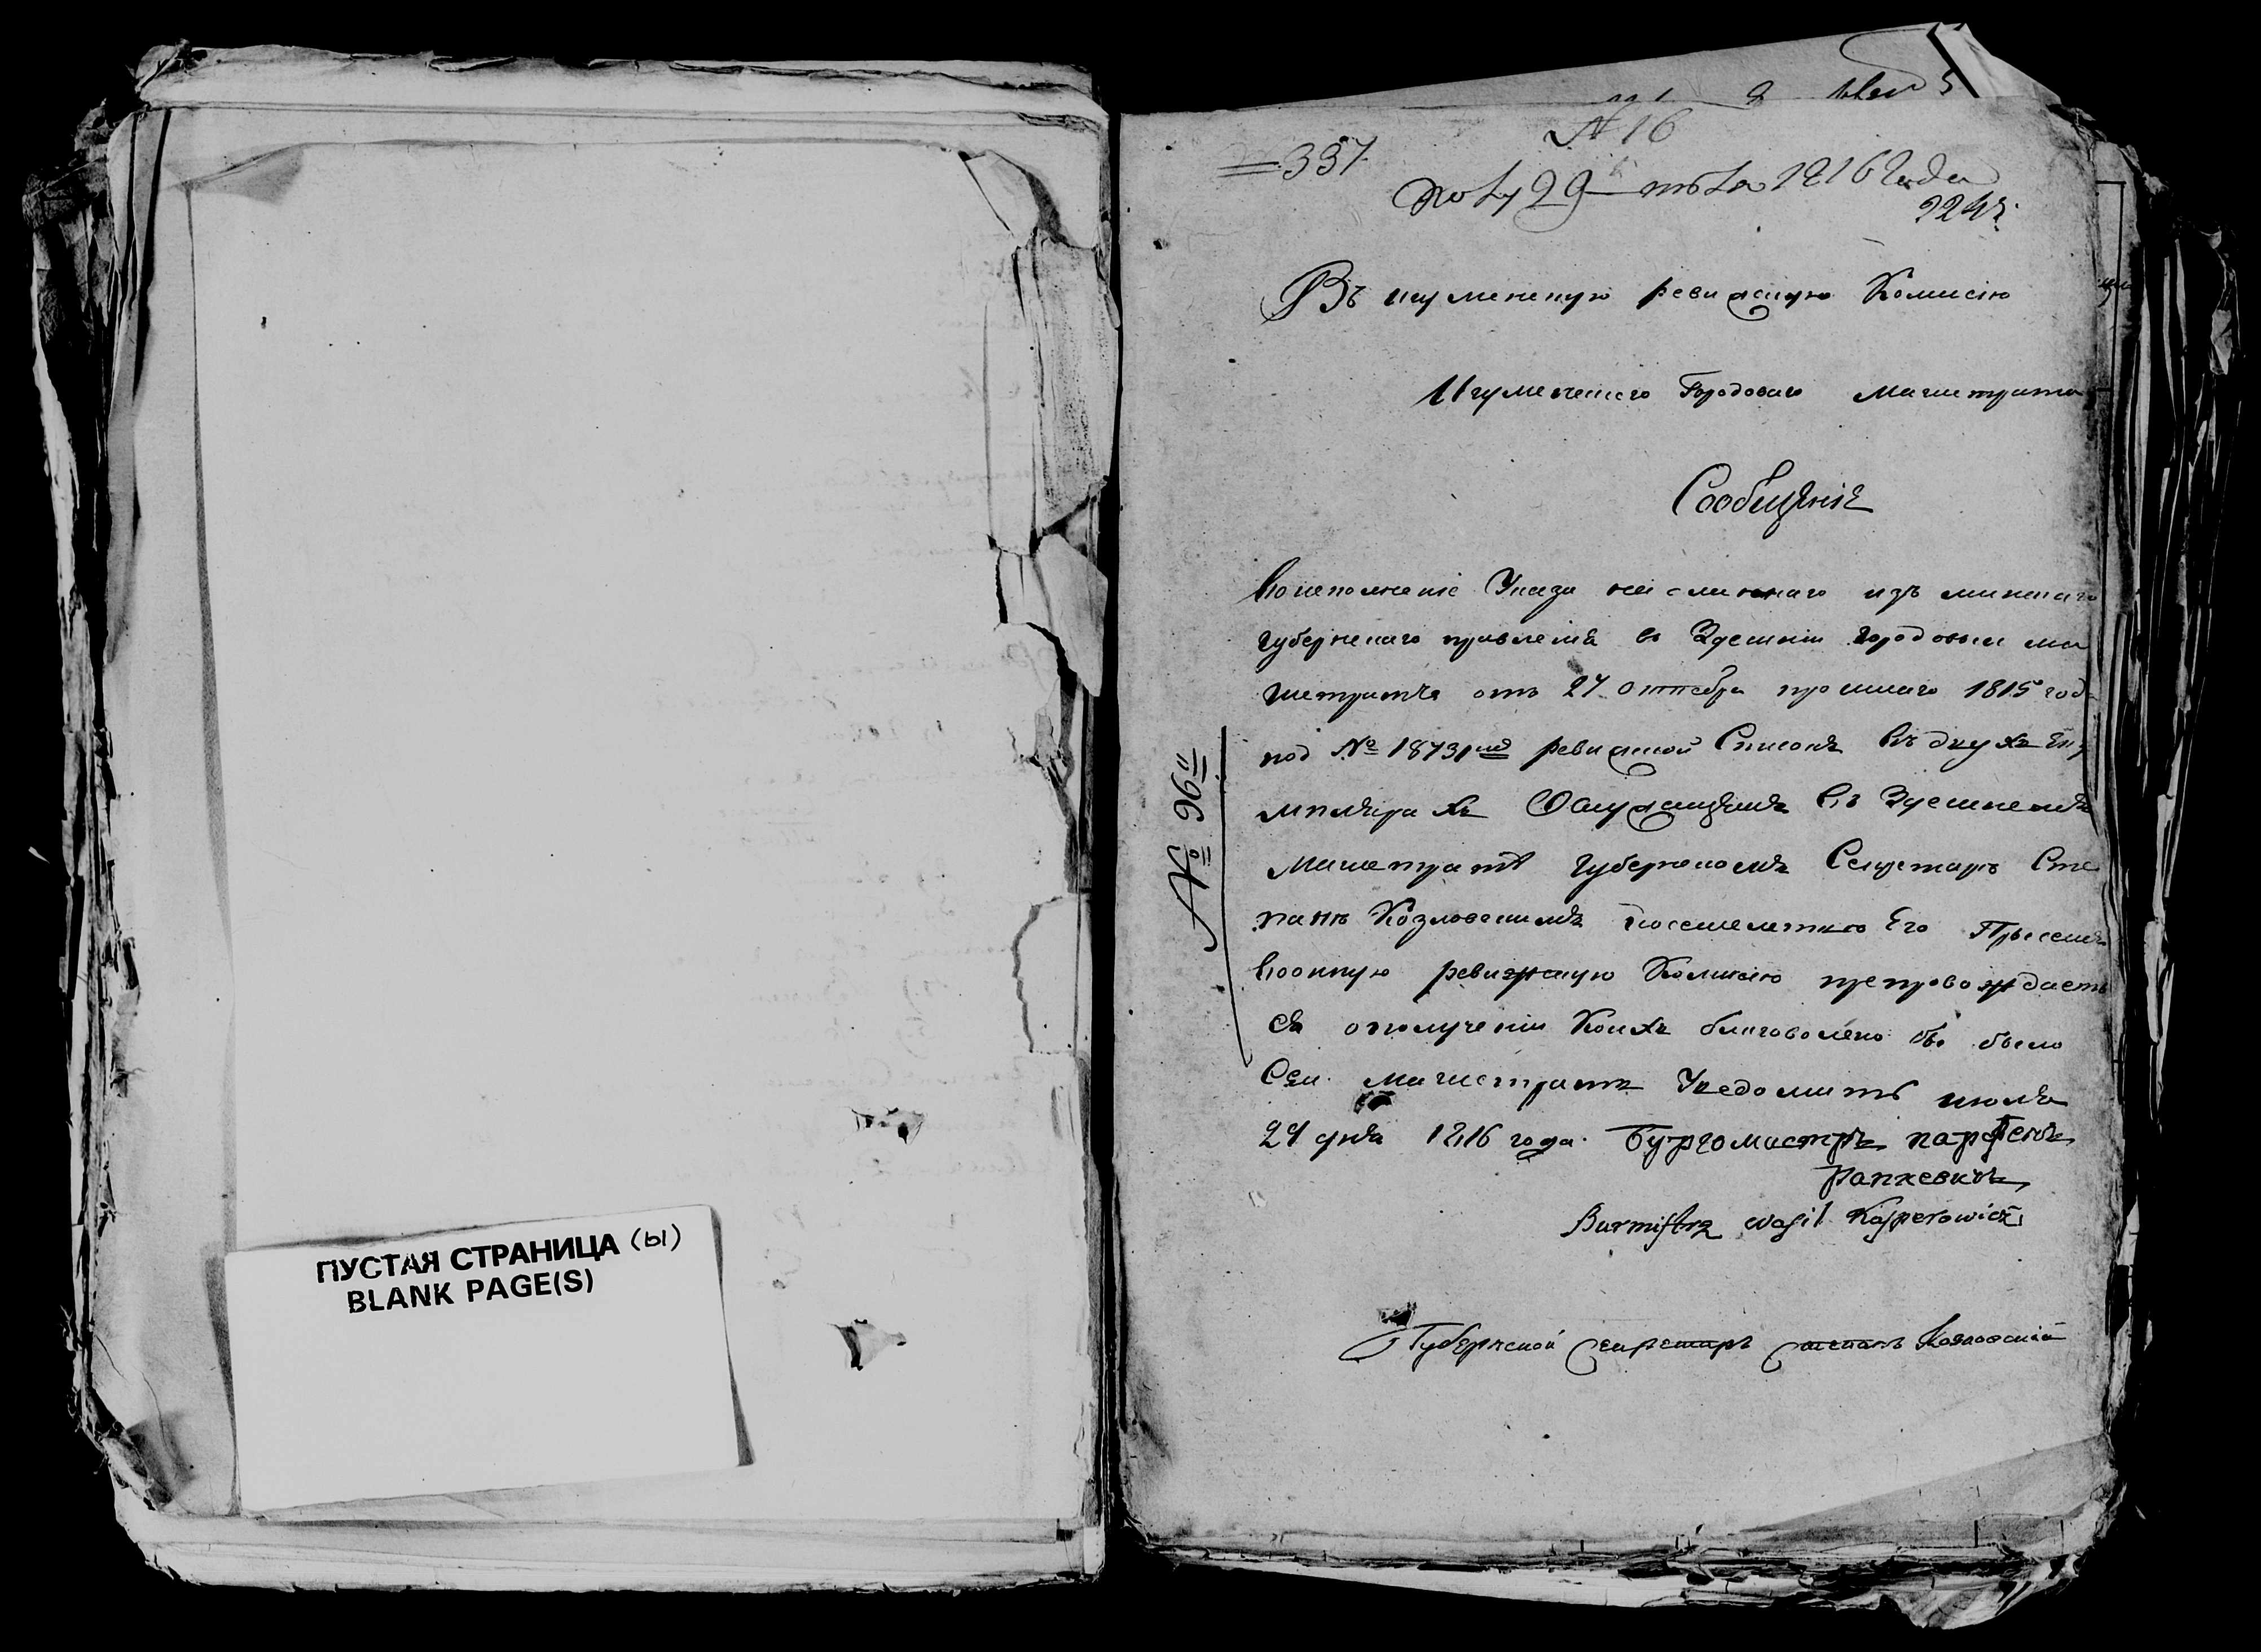 ПУСТАЯ СТРАНИЦА (ы)
BLANK PAGE(S)
№ 16
337
1816 года
Въ игуменскую ревизскую Комисию
Игуменского Городоваго Магистрата
Сообщение
Воисполнение Указа из минскаго
губернскаго правления в Здешни городовыи ма
гистратъ отъ 27 октебря прошлаго 1815 год
под № 18731 ревизской Списокъ въ двухъ екзе
мплярахъ Служащимъ въ Здешнемъ
Магистратѣ Губернскомъ Секретарь Сте
панъ Козловскимъ
ревизскую Комисию препровождаетъ
ся ополучении Коихъ благоволено бы было
Сеи магистратъ Уведомить июля
24 дня 1816 года. Бургомистръ парфенъ
рапкевичъ
Burmistrz Wasil Kasperowicz
Губернской секретарь степанъ Козловский
№ 96